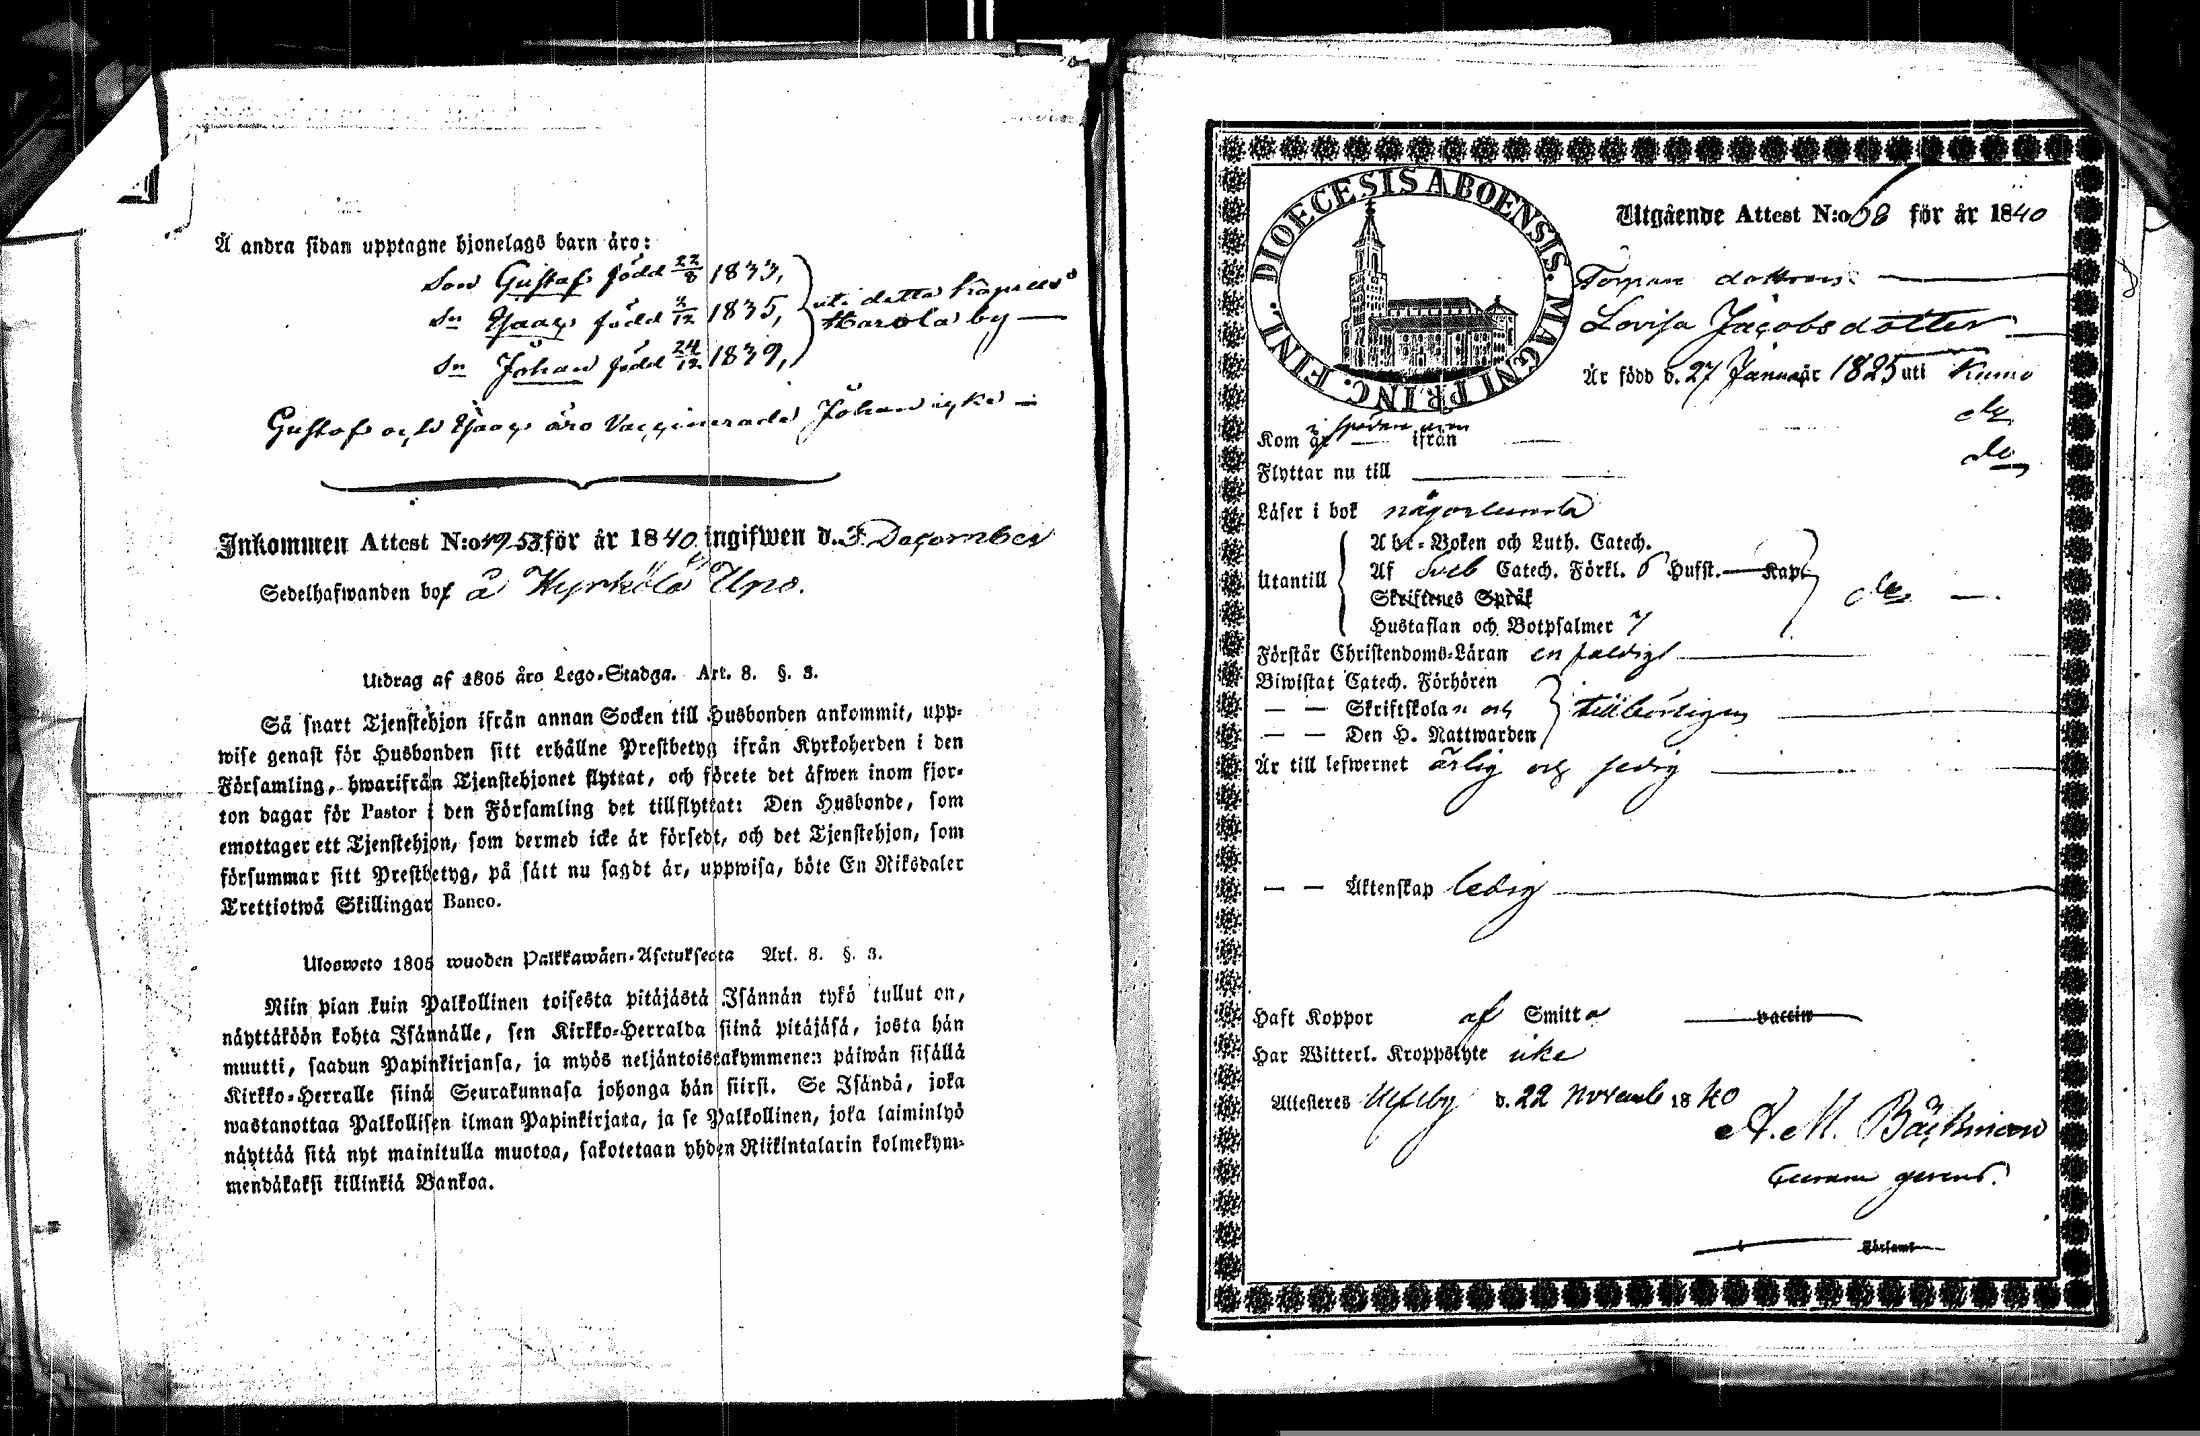 Å andra sidan upptagne hjonelags barn äro:
Son Gustaf född 22/8 1833,
Sn Isaac född 3/12 1835,
Sn Johan född 24/12 1839,
uti detta kapells
Harola by —
Gustaf och Isaac äro Vaccinerade Johan icke —
Inkommen Attest N:o 49.53 för år 1840 ingifwen d. 3 December
Sedelhafwanden bor å Kyrkölä Uno.
Utdrag af 1805 års Lego-Stadga. Art. 8. §. 3.
Så snart Tjenstehjon ifrån annan Socken till Husbonden ankommit, upp-
wise genast för Husbonden sitt erhållne Prestbetyg ifrån Kyrkoherden i den
Församling, hwarifrån Tjenstehjonet flyttat, och förete det äfwen inom fjor-
ton dagar för Pastor i den Församling det tillflyttat: Den Husbonde, som
emottager ett Tjenstehjon, som dermed icke är försedt, och det Tjenstehjon, som
försummar sitt Prestbetyg, på sätt nu sagdt är, uppwisa, böte En Riksdaler
Trettiotwå Skillingar Banco.
Ulosweto 1805 wuoden Palkkawäen-Asetuksesta Art. 8. §. 3.
Niin pian kuin Palkollinen toisesta pitäjästä Isännän tykö tullut on,
näyttäköön kohta Isännälle, sen Kirkko-Herralda siinä pitäjäsä, josta hän
muutti, saadun Papinkirjansa, ja myös neljäntoistakymmenen päiwän sisällä
Kirkko-Herralle siinä Seurakunnasa johonga hän siirsi. Se Isändä, joka
wastanottaa Palkollisen ilman Papinkirjata, ja se Palkollinen, joka laiminlyö
näyttää sitä nyt mainitulla muotoa, sakotetaan yhden Riikintalarin kolmekym-
mendäkaksi killinkiä Bankoa.
DIOECESIS ABOENSIS. MAGNI PRINC. FINL.
Utgående Attest N:o 68 för år 1840
Torpare dottren:
Lovisa Jacobsdotter
Är född d. 27 Januar 1825 uti Kumo
Kom år ifrån do
Flyttar nu till do
Läser i bok någorlunda
Utantill
Abc-Boken och Luth. Catech.
Af Sveb Catech. Förkl. 6 Hufst. — Kap.
Skriftenes Språk
Hustaflan och Botpsalmer 7
do —
Förstår Christendoms-Läran enfaldigt
Biwistat Catech. Förhören
— — Skriftskolan och
— — Den H. Nattwarden
tillbörligen
Är till lefwernet ärlig och sedig
— — Äktenskap ledig
Haft Koppor af Smitta vaccin
Har Witterl. Kroppslyte icke
Attesteras Ulfsby d. 22 Novemb 1840
A. M. Bäckman
Curam gerens.
Församl